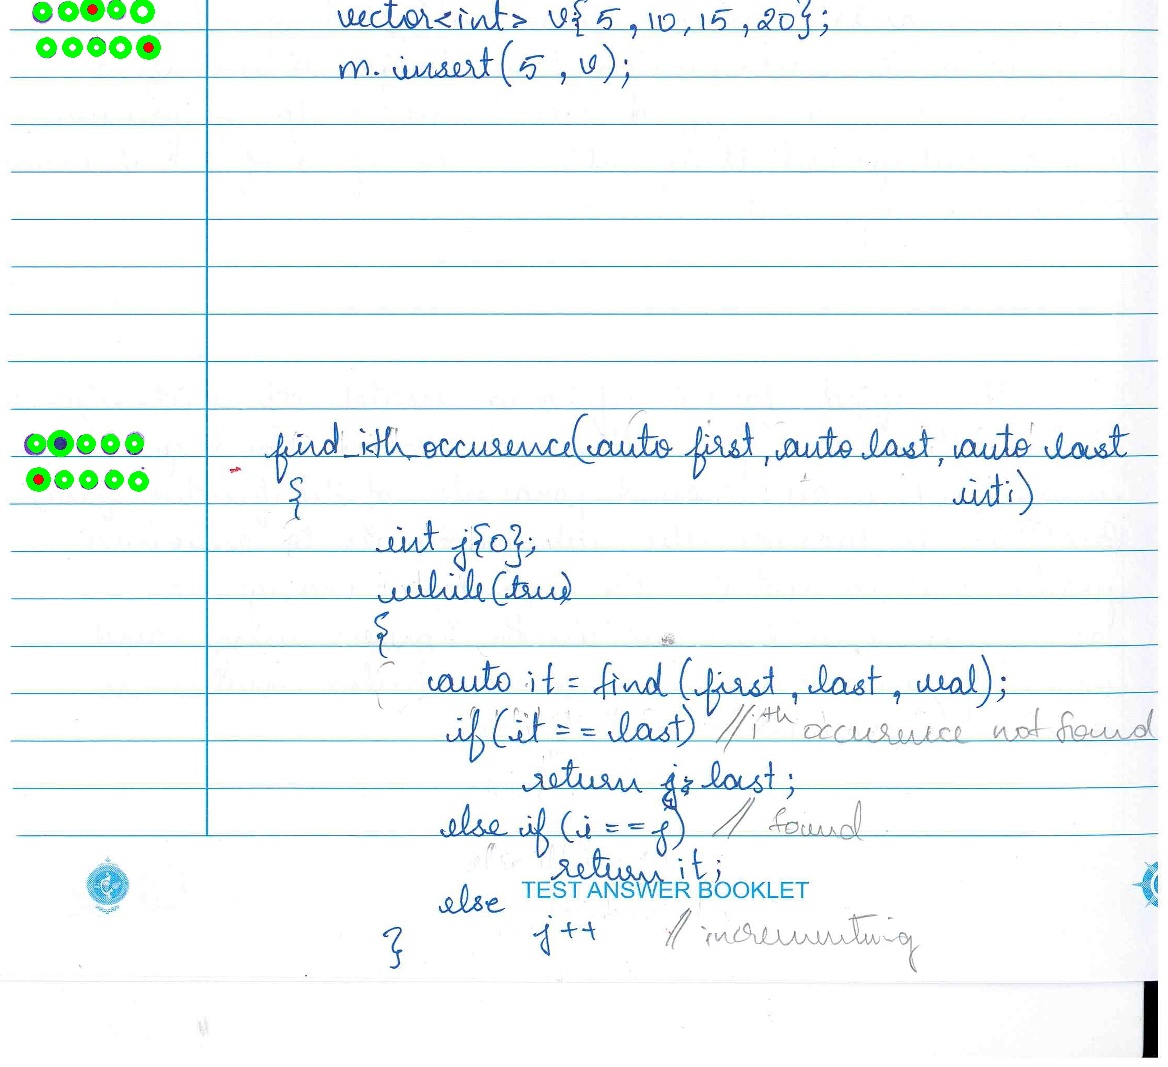 vector<int> v{5,10,15,20};
m. insert(5,v);
find_ith_occurence(auto first, auto last, auto last
int i)
{
int j{0};
while(true)
{
auto it = find (first, last, val);
if (it == last) //ith occurence not found
return last;
else if (i == j) // found
return it;
TEST ANSWER BOOKLET
else
j++ // incrementing
}